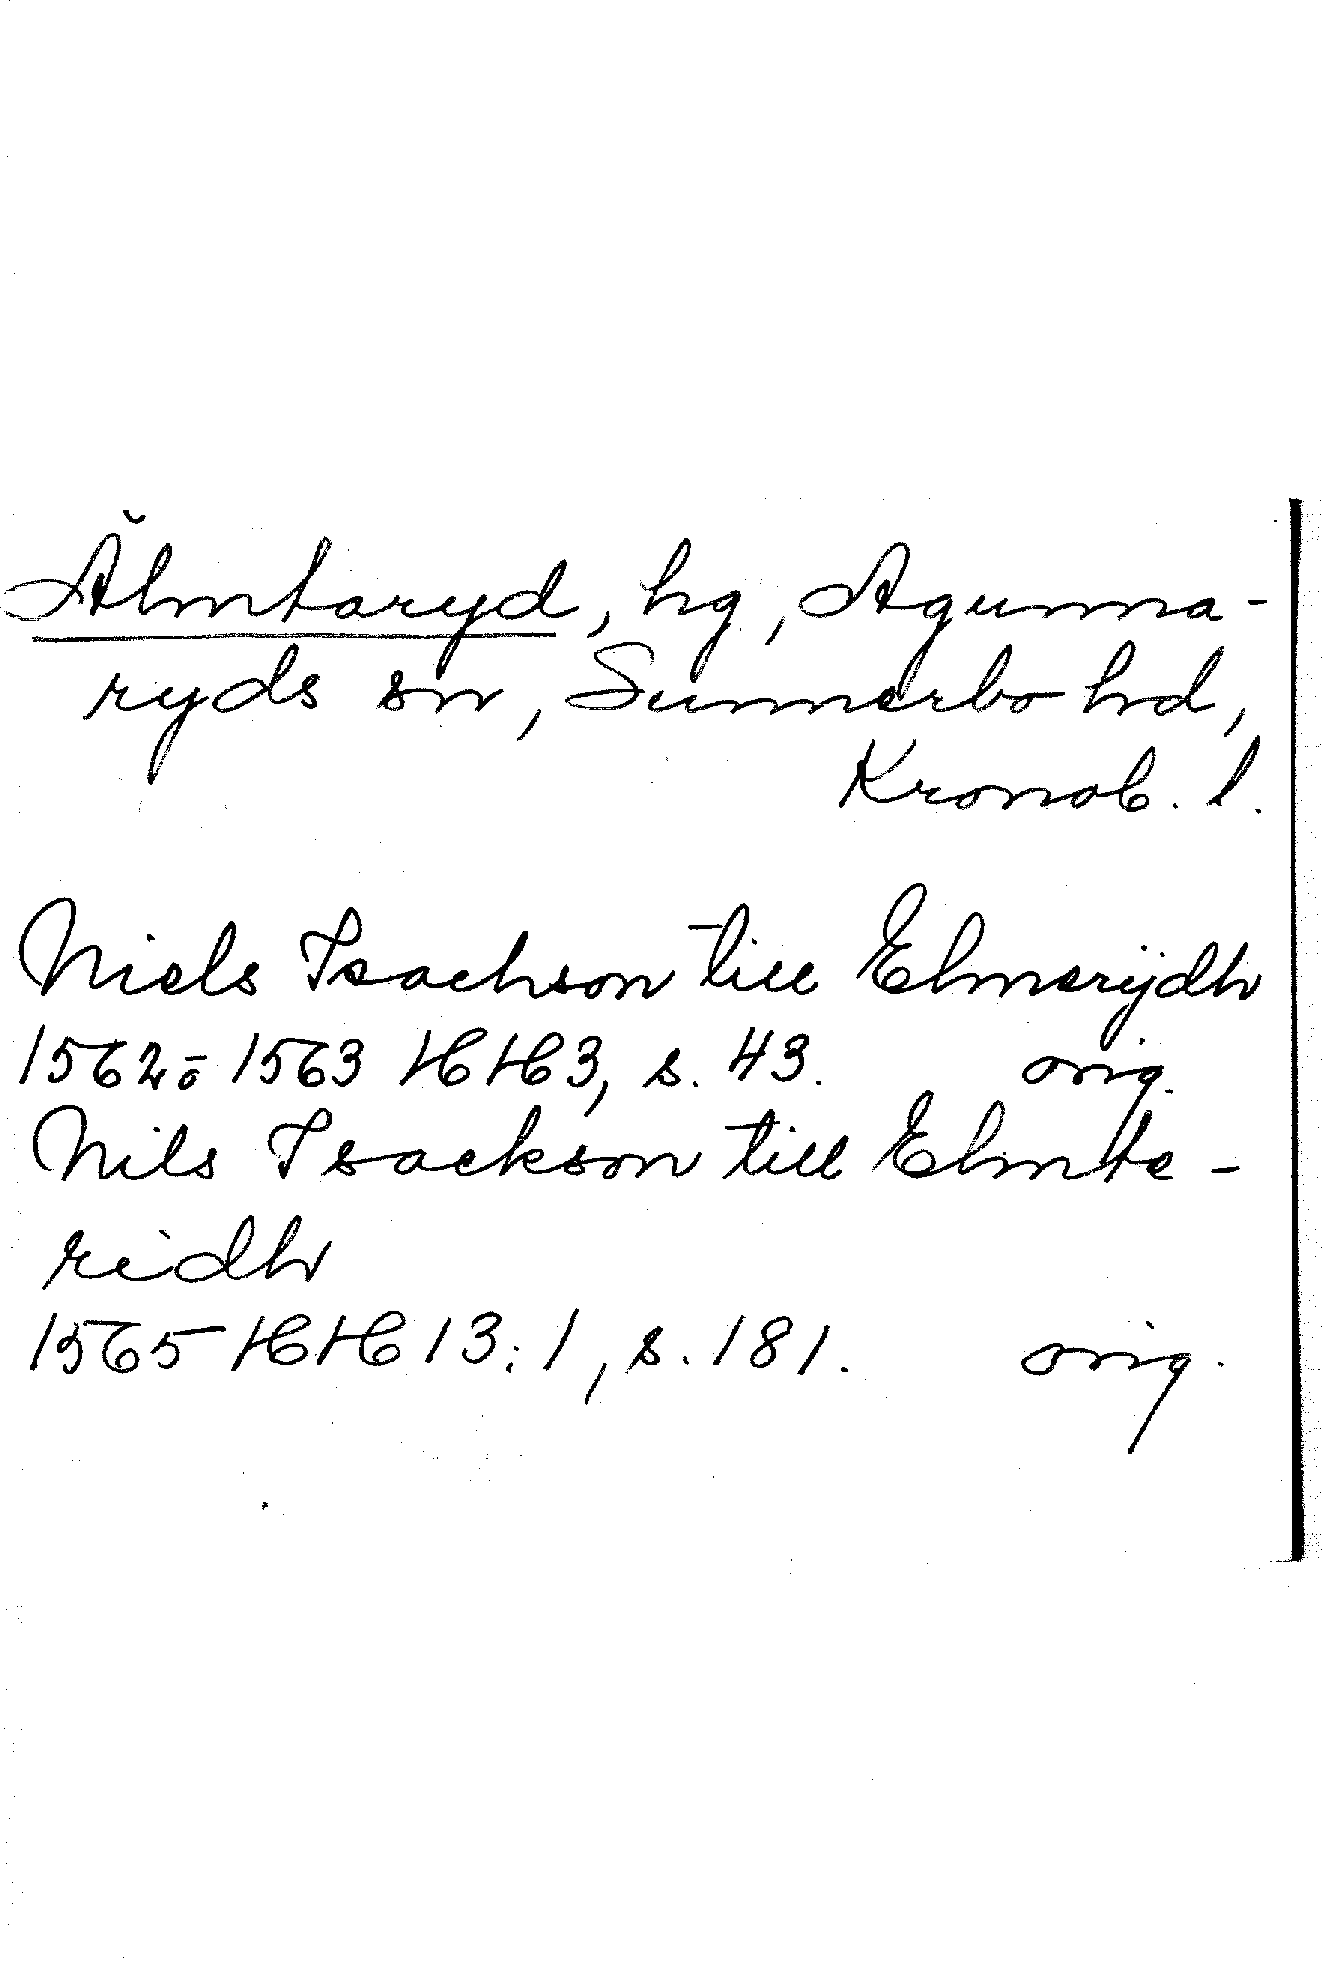 Älmtaryd, hg, Agunna-
ryds sn, Sunnerbo hd,
Kronob. l.
Niels Isachson till Elmerÿdh
1562 o 1563 HH 3, s. 43. orig.
Nils Isackson till Elmte-
ridh
1565 HH 13:1, s. 181. orig.